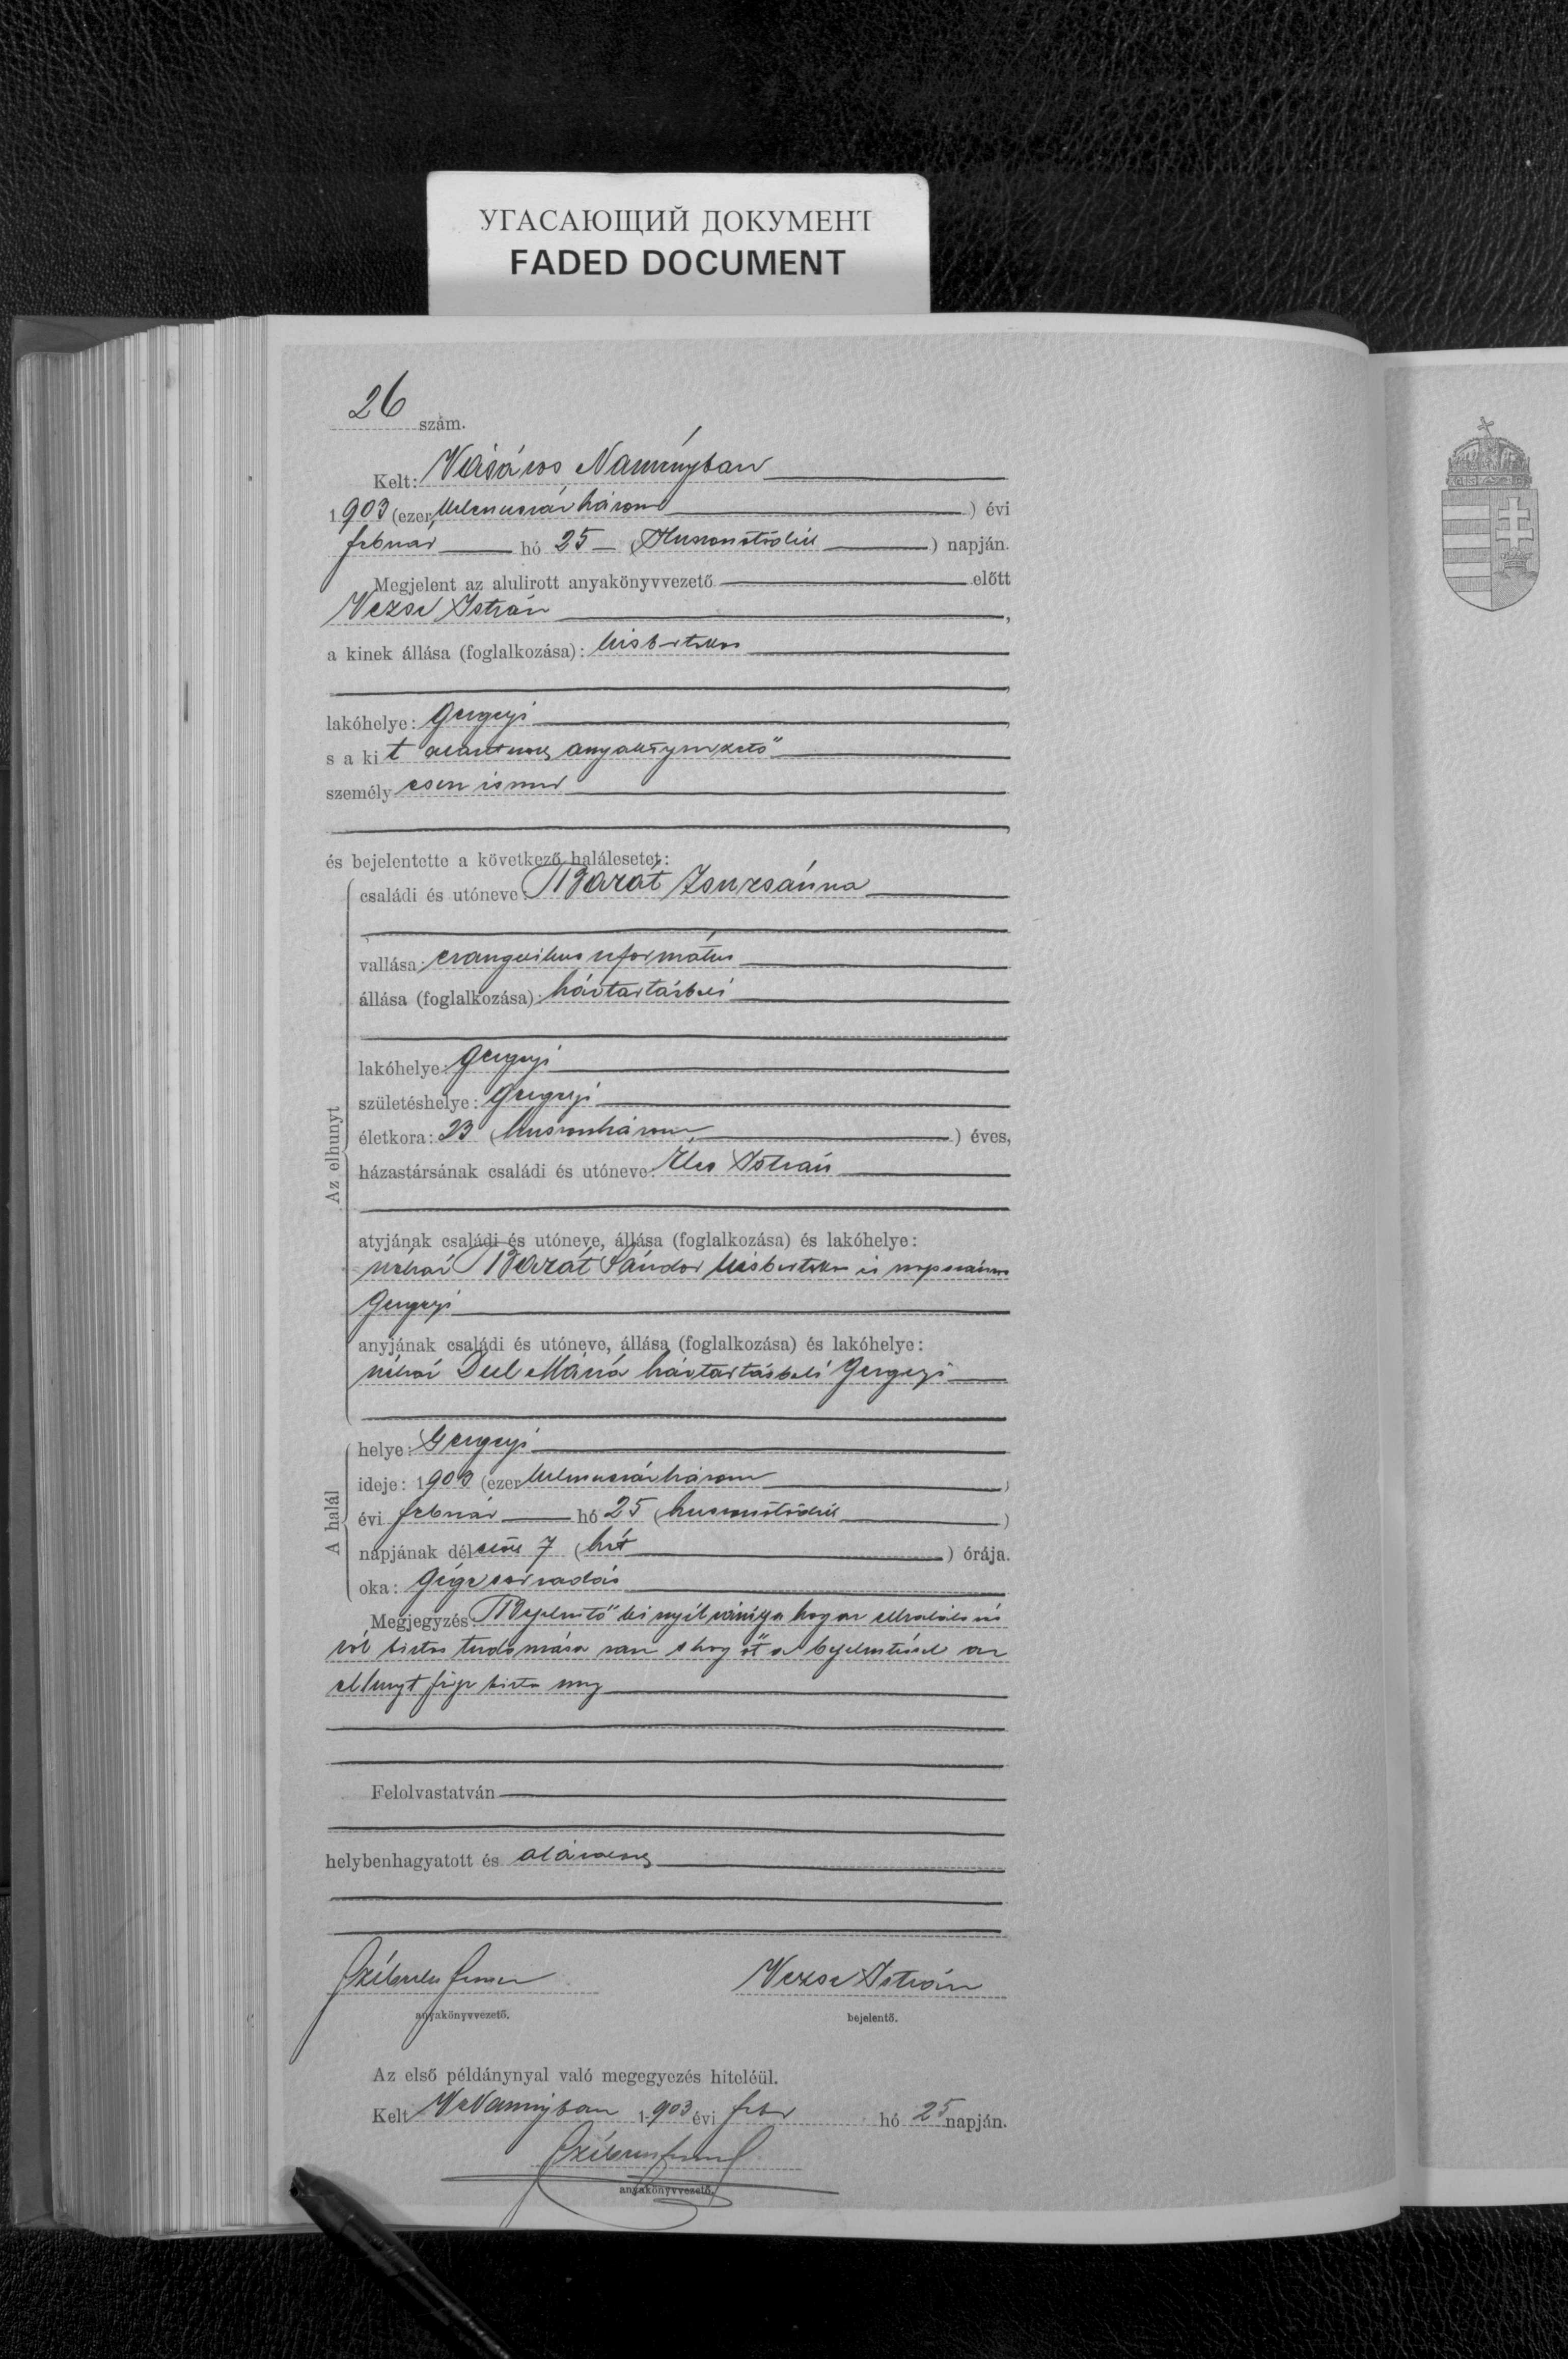 УГАСАЮЩИЙ ДОКУМЕНТ
FADED DOCUMENT
26 szám.
Kelt: Vásáros Naményban
1903 (ezer kilenczszázhárom) évi
február hó 25 (Huszonötödik) napján.
Megjelent az alulirott anyakönyvvezető előtt
Vezse István,
a kinek állása (foglalkozása): kisbirtokos
lakóhelye: Gergelyi
s a kit anyakönyvvezető
személyesen ismer
és bejelentette a következő halálesetet:
Az elhunyt
családi és utóneve: Barát Zsuzsánna
vallása: evangelikus református
állása (foglalkozása): háztartásbeli
lakóhelye: Gergelyi
születéshelye: Gergelyi
életkora: 23 (huszonhárom) éves,
házastársának családi és utóneve: István
atyjának családi és utóneve, állása (foglalkozása) és lakóhelye:
néhai Barát Sándor kisbirtokos és napszámos
Gergelyi
anyjának családi és utóneve, állása (foglalkozása) és lakóhelye:
néhai Deel Mária háztartásbeli Gergelyi
A halál
helye: Gergelyi
ideje: 1903 (ezer kilenczszázhárom)
évi február hó 25 (huszonötödik)
napjának délelőtt 7 (hét) órája.
oka: Gégesorvadás
Megjegyzés: Bejelentő kinyilvánítja hogy az elhalálozás
ról biztos tudomása van s hogy őt a bejelentéssel az
elhunyt férje bízta meg
Felolvastatván
helybenhagyatott és aláíratott
Vezse István
anyakönyvvezető. bejelentő.
Az első példánynyal való megegyezés hiteléül.
Kelt V.Naményban 1903 évi febr hó 25 napján.
anyakönyvvezető.